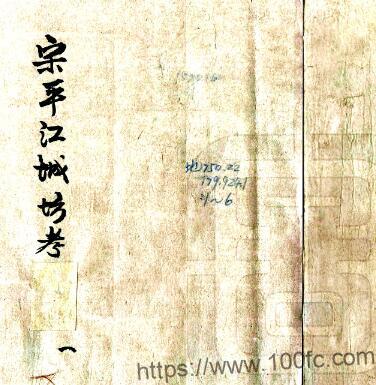 宋平江城坊考
一
地750.22
179.9241
:1~6
https://www.100fc.com